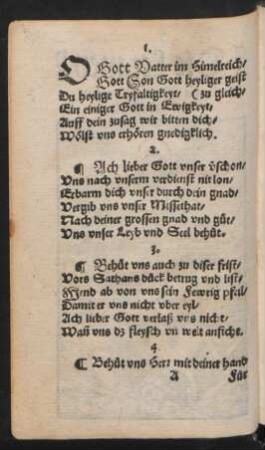 1.
O Gott Vatter im Himelreich/
Gott Son Gott heyliger geist
Du heylige Tryfaltigkeyt/ (zu gleich/
Ein einiger Gott in Ewigkeyt/
Auff dein zusag wir bitten dich/
Wölst vns erhören gnedigklich.
2.
¶ Ach lieber Gott vnser v̈schon/
Vns nach vnserm verdienst nit lon/
Erbarm dich vnser durch dein gnad/
Vergib vns vnser Missethat/
Nach deiner grossen gnad vnd güt/
Vns vnser Leyb vnd Seel behüt.
3.
¶ Behüt vns auch zu diser frist/
Vors Sathans dück betrug vnd list/
Wend ab von vns sein Fewrig pfeil/
Damit er vns nicht vber eyl/
Ach lieber Gott verlaß vns nicht/
Wañ vns dz fleysch vñ welt anficht.
4.
¶ Behüt vns Herr mit deiner hand
A Für